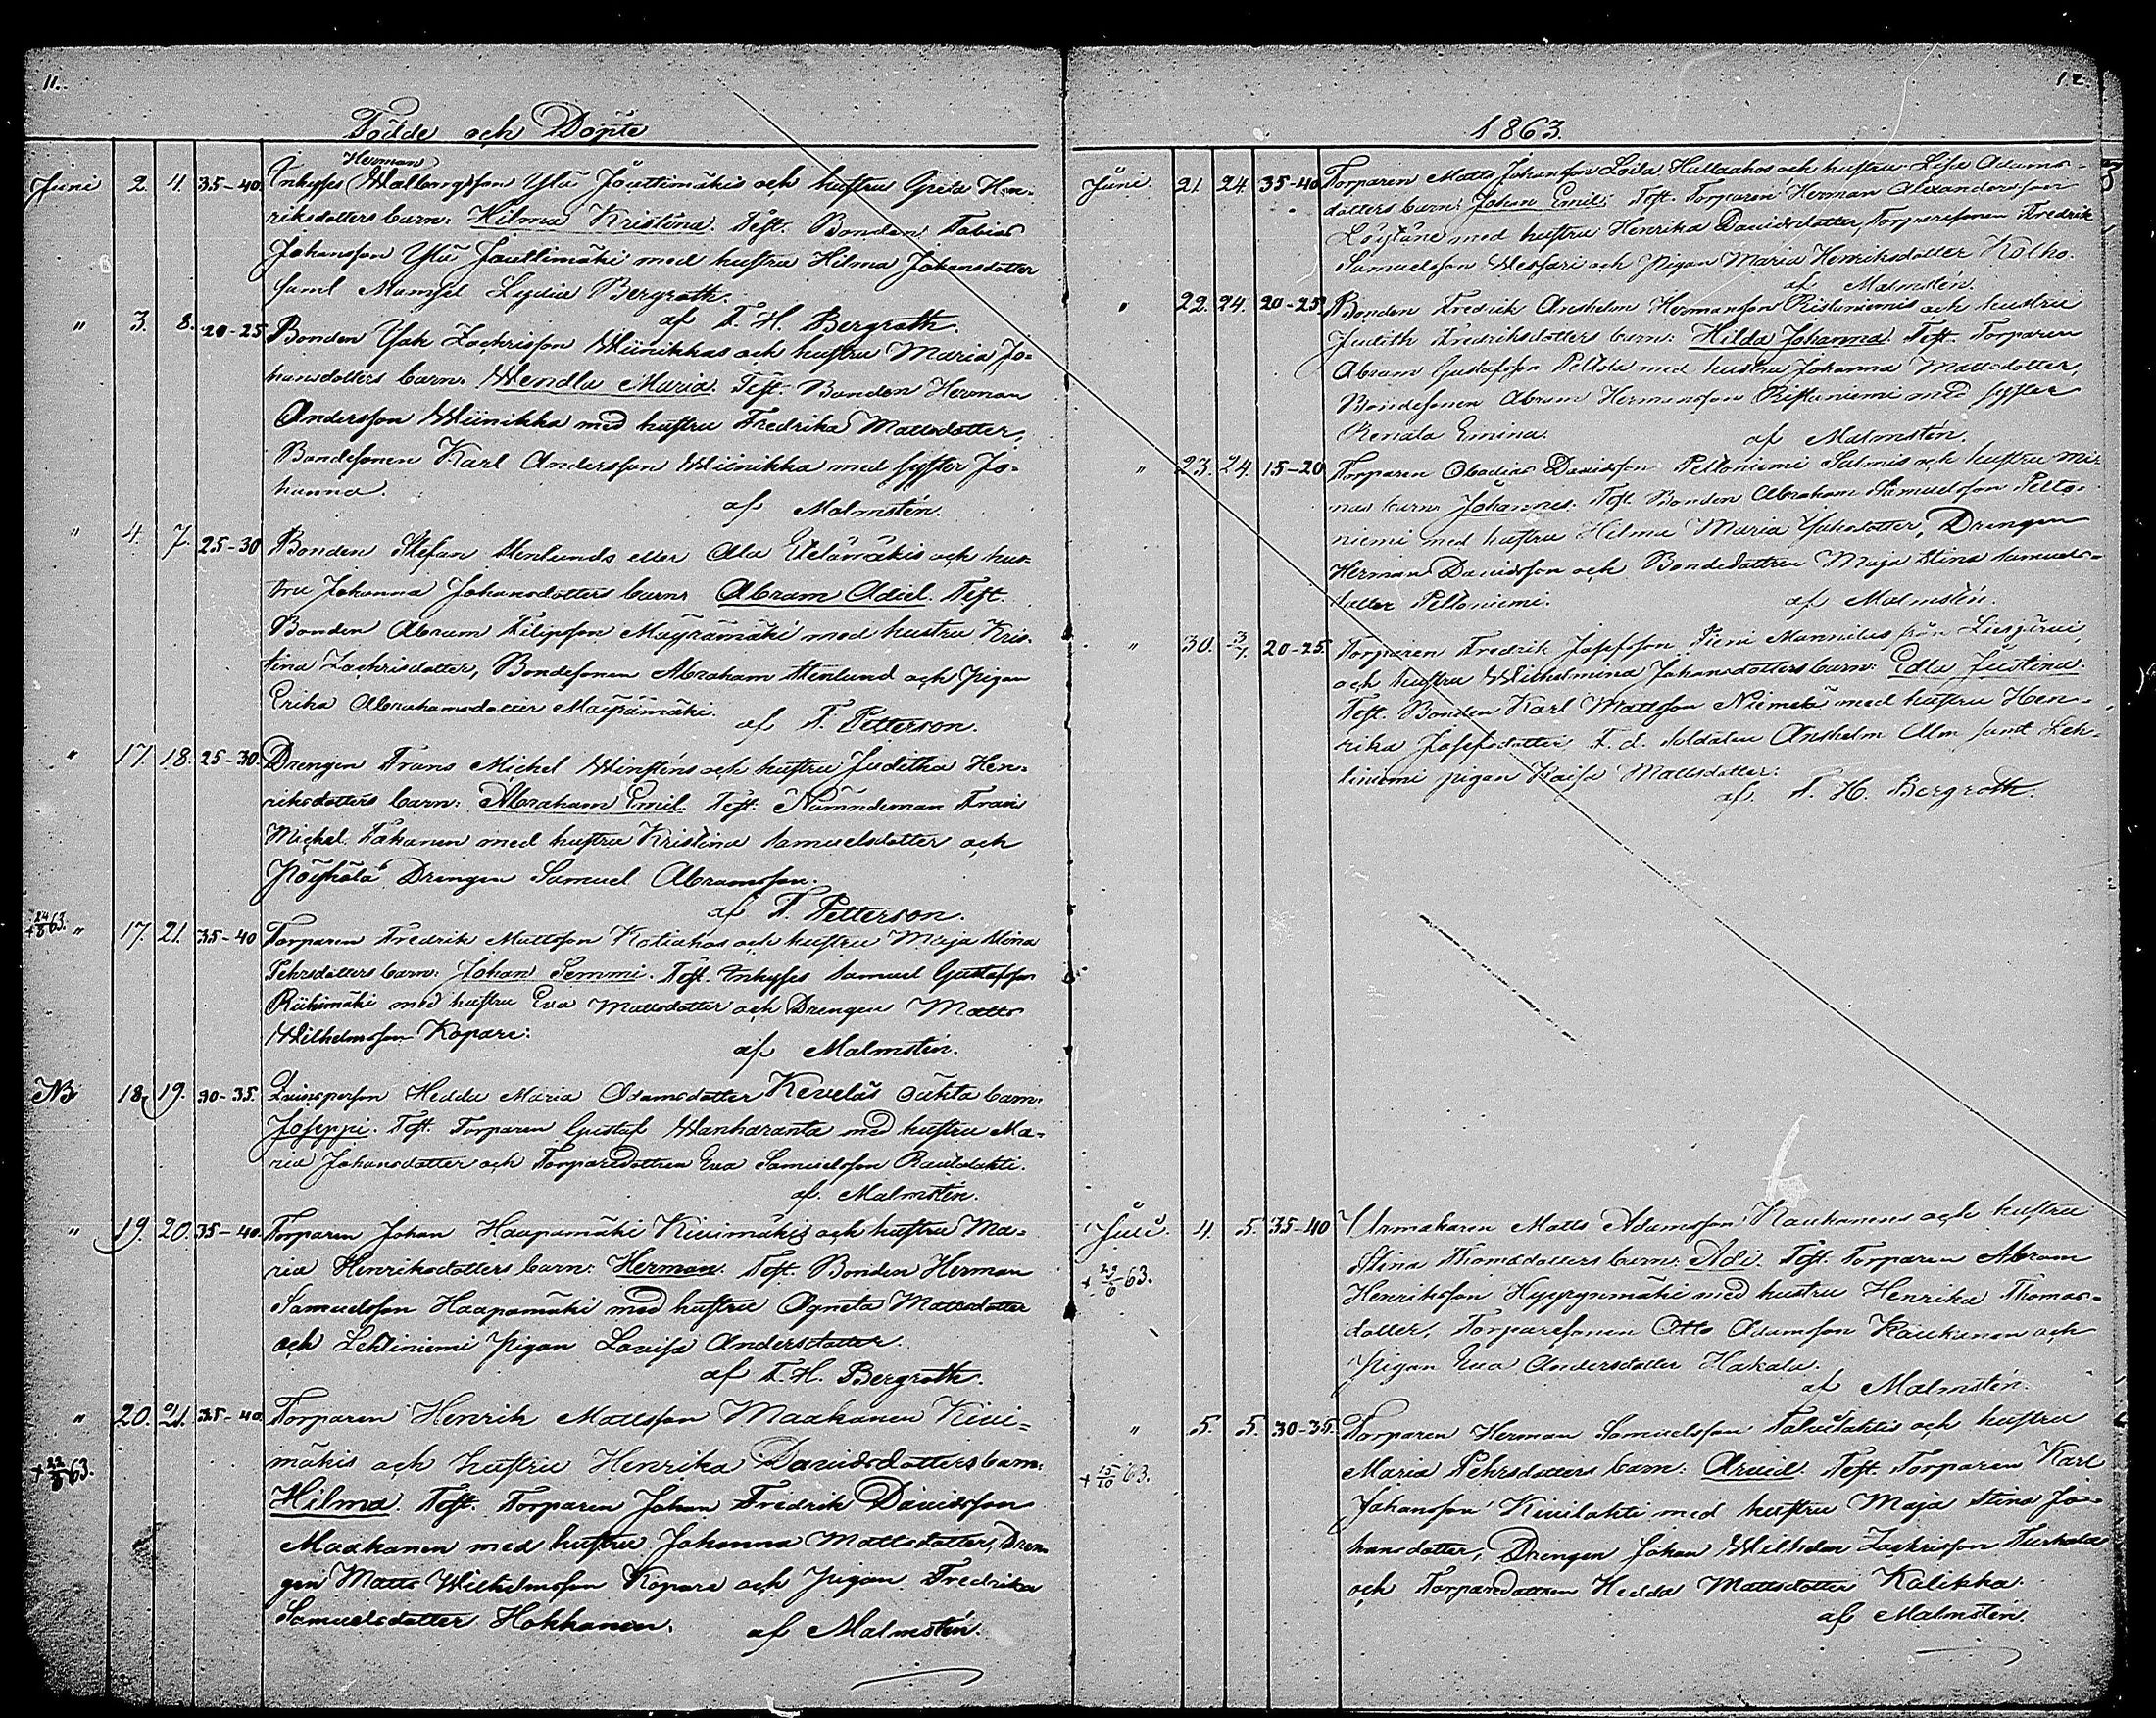 11.
Födde och Döpte
Herman
Juni 2. 4. 35-40 Inhyses Walborgsson Ylä Jouttimäkis och hustru Greta Hen-
riksdotters barn: Hilma Kristina. Test. Bonden Tobias
Johansson Ylä Jouttimäki med hustru Hilma Johansdotter
samt Mamsel Lydia Bergroth.
af F. H. Bergroth.
" 3. 8. 20-25 Bonden Isak Zachrisson Wiinikkas och hustru Maria Jo-
hansdotters barn: Wendla Maria. Test. Bonden Herman
Andersson Wiinikka med hustru Fredrika Mattsdotter,
Bondesonen Karl Andersson Wiinikka med syster Jo-
hanna.
af Malmstén.
" 4. 7. 25-30 Bonden Stefan Stenlunds eller Ala Etelämäkis och hus-
tru Johanna Johansdotters barn: Abram Adiel. Test.
Bonden Abram Filipsson Mäyrämäki med hustru Kris-
tina Zachrisdotter, Bondesonen Abraham Stenlund och pigan
Erika Abrahamsdotter Mäyrämäki.
af F. Petterson.
" 17. 18. 25-30 Drengen Frans Michel Winsténs och hustru Juditha Hen-
riksdotters barn: Abraham Emil. Test. Nämndeman Frans
Michel Takanen med hustru Kristina Samuelsdotter och
Pöyhölä Drengen Samuel Abramsson.
af F. Petterson.
+24/8 63. " 17. 21. 35-40 Torparen Fredrik Mattsson Kotiahos och hustru Maja Stina
Pehrsdotters barn: Johan Semmi. Test. Inhyses Samuel Gustafsson
Riihimäki med hustru Eva Mattsdotter och Drengen Matts
Wilhelmsson Kopare:
af Malmstén.
NB 18. 19. 30-35. Qvinsperson Hedda Maria Adamsdotter Keveläs oäkta barn:
Joseppi. Test. Torparen Gustaf Wanharanta med hustru Ma-
ria Johansdotter och Torparedottren Eva Samuelsson Rautalahti.
af. Malmstén.
" 19. 20. 35-40. Torparen Johan Haapamäki Kivimäkis och hustru Ma-
ria Henriksdotters barn: Herman. Test. Bonden Herman
Samuelsson Haapamäki med hustru Agneta Mattsdotter
och Lehtiniemi pigan Lovisa Andersdotter.
af F. H. Bergroth.
" 20. 21. 35-40. Torparen Henrik Mattsson Maakanen Kivi-
mäkis och hustru Henrika Davidsdotters barn:
+22/8 63. Hilma. Test. Torparen Johan Fredrik Davidsson
Maakanen med hustru Johanna Mattsdotter, Dren-
gen Matts Wilhelmsson Kopare och pigan Fredrika
Samuelsdotter Hokkanen.
af Malmstén.
12.
1863.
Juni. 21. 24. 35-40 Torparen Matts Johansson Hallaahos och hustru Lisa Adams-
dotters barn: Johan Emil. Test. Torparen Herman Alexandersson
Löytäne med hustru Henrika Davidsdotter, Torparesonen Fredrik
Samuelsson Wessari och pigan Maria Henriksdotter Kolho.
af Malmstén.
" 22. 24. 20-25. Bonden Fredrik Anshelm Hermansson Ristaniemis och hustru
Judith Fredriksdotters barn: Hilda Johanna. Test. Torparen
Abram Gustafsson Peltola med hustru Johanna Mattsdotter,
Bondesonen Abram Hermansson Ristaniemi med syster
Renata Emina.
af Malmstén.
" 23. 24. 15-20 Torparen Obadias Davidsson Peltoniemi Salmis och hustru Mi-
nas barn: Johannes. Test. Bonden Abraham Samuelsson Pelto-
niemi med hustru Hilma Maria Isaksdotter, Drengen
Herman Davidsson och Bondedottren Maja Stina Samuels-
dotter Peltoniemi.
af Malmstén.
" 30. 3/7. 20-25. Torparen Fredrik Josefsson Pieni Mannilas från Liesjärvi
och hustru Wilhelmina Johansdotters barn: Edla Justina.
Test. Bonden Karl Mattsson Niemelä med hustru Hen-
rika Josefsdotter F. d. Soldaten Anshelm Alm samt Leh-
tiniemi pigan Kaisa Mattsdotter:
af. F. H. Bergroth.
Juli. 4. 5. 35-40 Urmakaren Matts Adamsson Kaukanens och hustru
Stina Thomasdotters barn: Adi. Test. Torparen Abram
+29/6 63. Henriksson Hyypynmäki med hustru Henrika Thomas-
dotter, Torparesonen Otto Adamsson Kaukanen och
Pigan Eva Andersdotter Hakala.
af Malmstén.
" 5. 5. 30-35. Torparen Herman Samuelsson Talvilahtis och hustru
+15/10 63. Maria Pehrsdotters barn: Arvid. Test. Torparen Karl
Johansson Kivilahti med hustru Maja Stina Jo-
hansdotter, Drengen Johan Wilhelm Zachrisson Turkola
och Torparedottren Hedda Mattsdotter Kalikka.
af Malmstén.